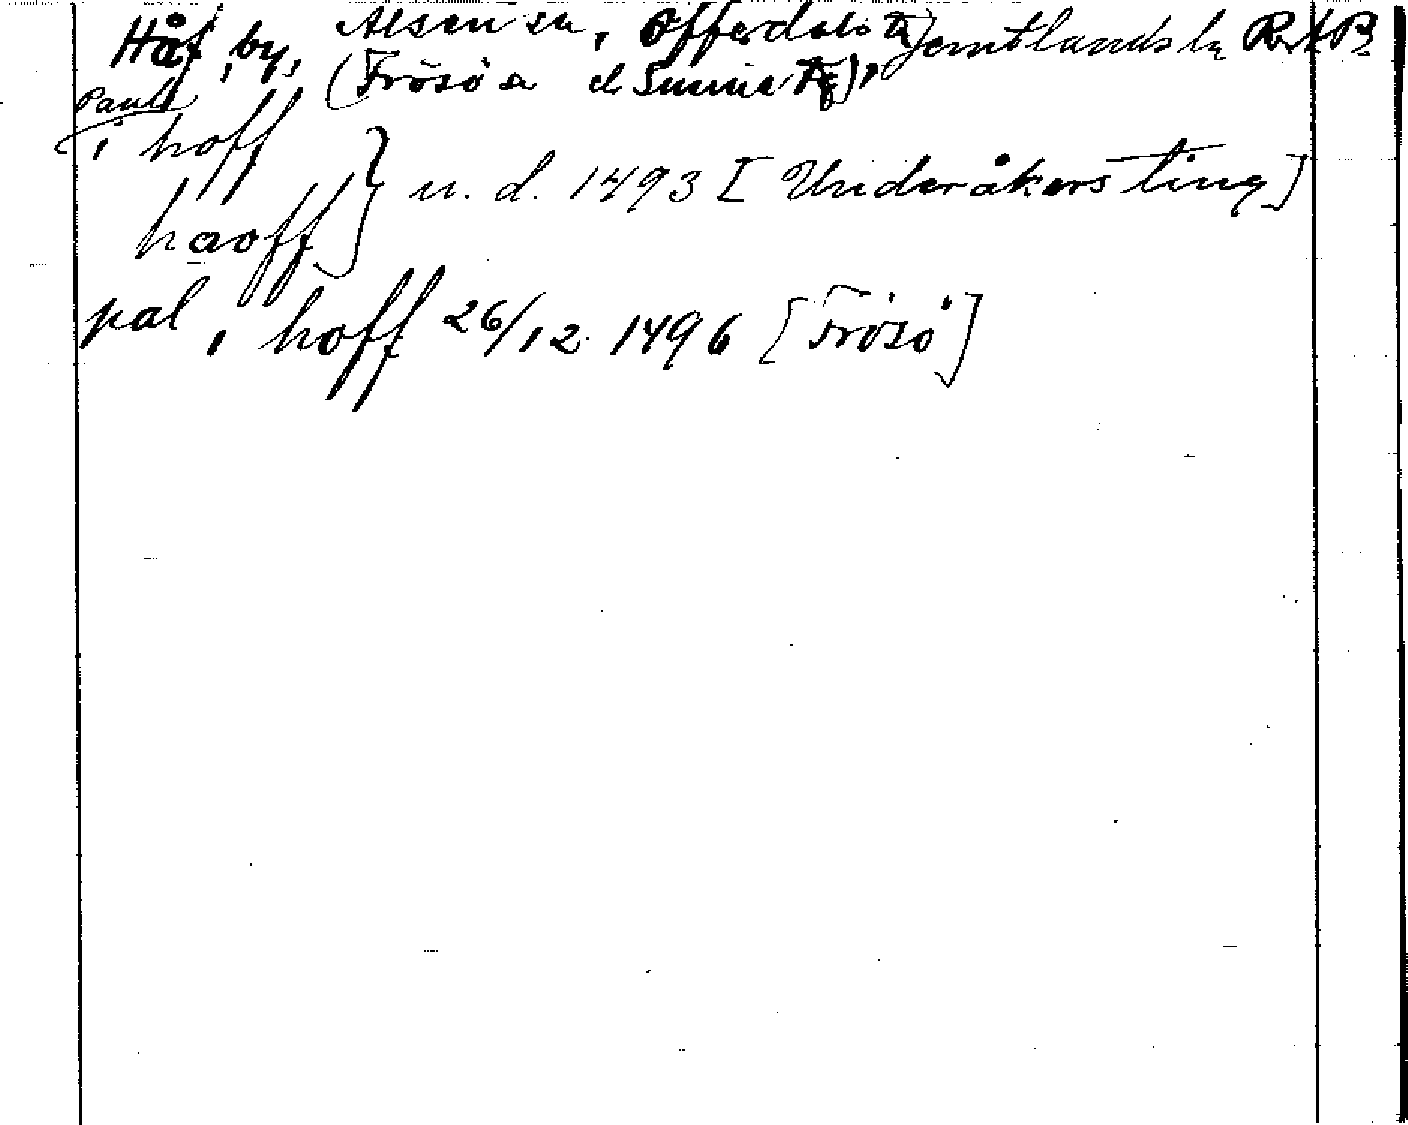 Håf, by, Alsen sn, Offerdals tg Jemtlands ln RAP
(Frösö sn el Sunne tg),
Paul
i hoff
haoff } u. d. 1493 [Underåkers ting]
pal i hoff 26/12 1496 [Frösö]